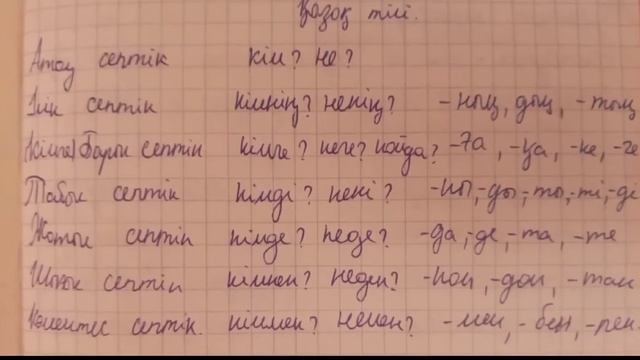 Қазақ тілі.
Атау септік кім? не?
Ілік септік кімнің? ненің? -ның, дың, -тың
(кімге) Барыс септік кімге? неге? қайда? -ға, -қа, -ке, -ге
Табыс септік кімді? нені? -ны,-ды,-ты,-ті,-де
Жатыс септік кімде? неде? -да,-де,-та,-те
Шығыс септік кімнен? неден? -нан,-дан,-тан
Көмектес септік. кіммен? немен? -мен,-бен,-пен